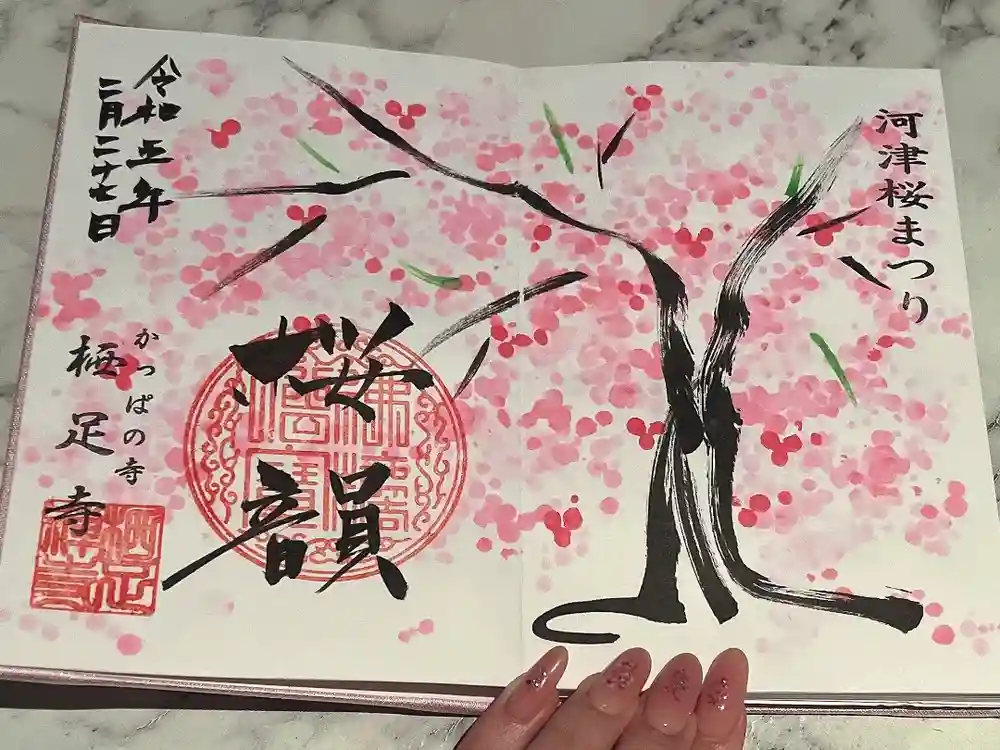 河津桜まつり
桜韻
令和五年
二月二十七日
かっぱの寺
栖足寺
佛法僧寶